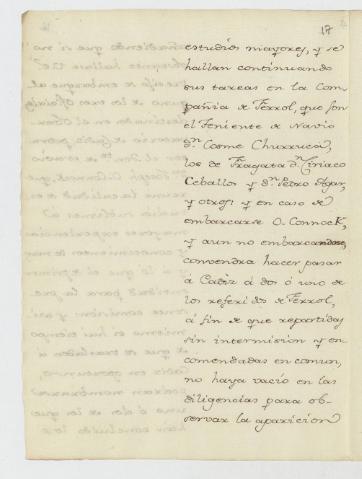 17
estudios mayores, y se
hallan continuando
sus tareas en la Com-
pañia de Ferrol, que son
el Teniente de Navio
Dn. Cosme Churruca,
los de Fragata Dn. Ciriaco
Ceballos y Dn. Pedro Agar,
y otros y en caso de
embarcarse O. Connock,
y aun no embarcandose,
convendra hacer pasar
á Cadiz á dos ó uno de
los referidos de Ferrol,
á fin de que repartidas
sin intermision y en
comendadas en comun,
no haya vacio en las
diligencias para ob-
servar la aparicion